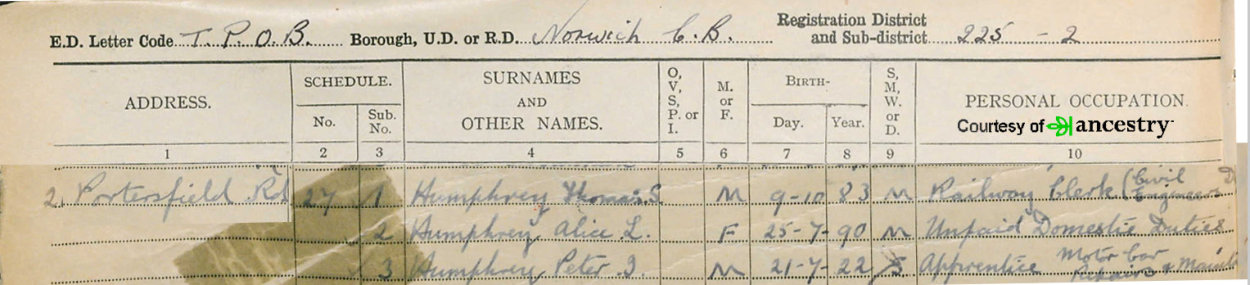 E.D. Letter Code T. P. O. B. Borough, U.D. or R.D. Norwich C. B. Registration District and Sub-district 225 - 2
ADDRESS. SCHEDULE. No. Sub. No. SURNAMES AND OTHER NAMES. O, V, S, P. or I. M. or F. BIRTH- Day. Year. S, M, W. or D. PERSONAL OCCUPATION.
Courtesy of ancestry
1 2 3 4 5 6 7 8 9 10
2, Portersfield Rd 27 1 Humphrey Thomas S. M 9-10 83 M Railway Clerk (Civil Engineers D
2 Humphrey Alice L. F 25-7- 90 M Unpaid Domestic Duties
3 Humphrey Peter J. M 21-7- 22 S Apprentice Motor Car Repairs &